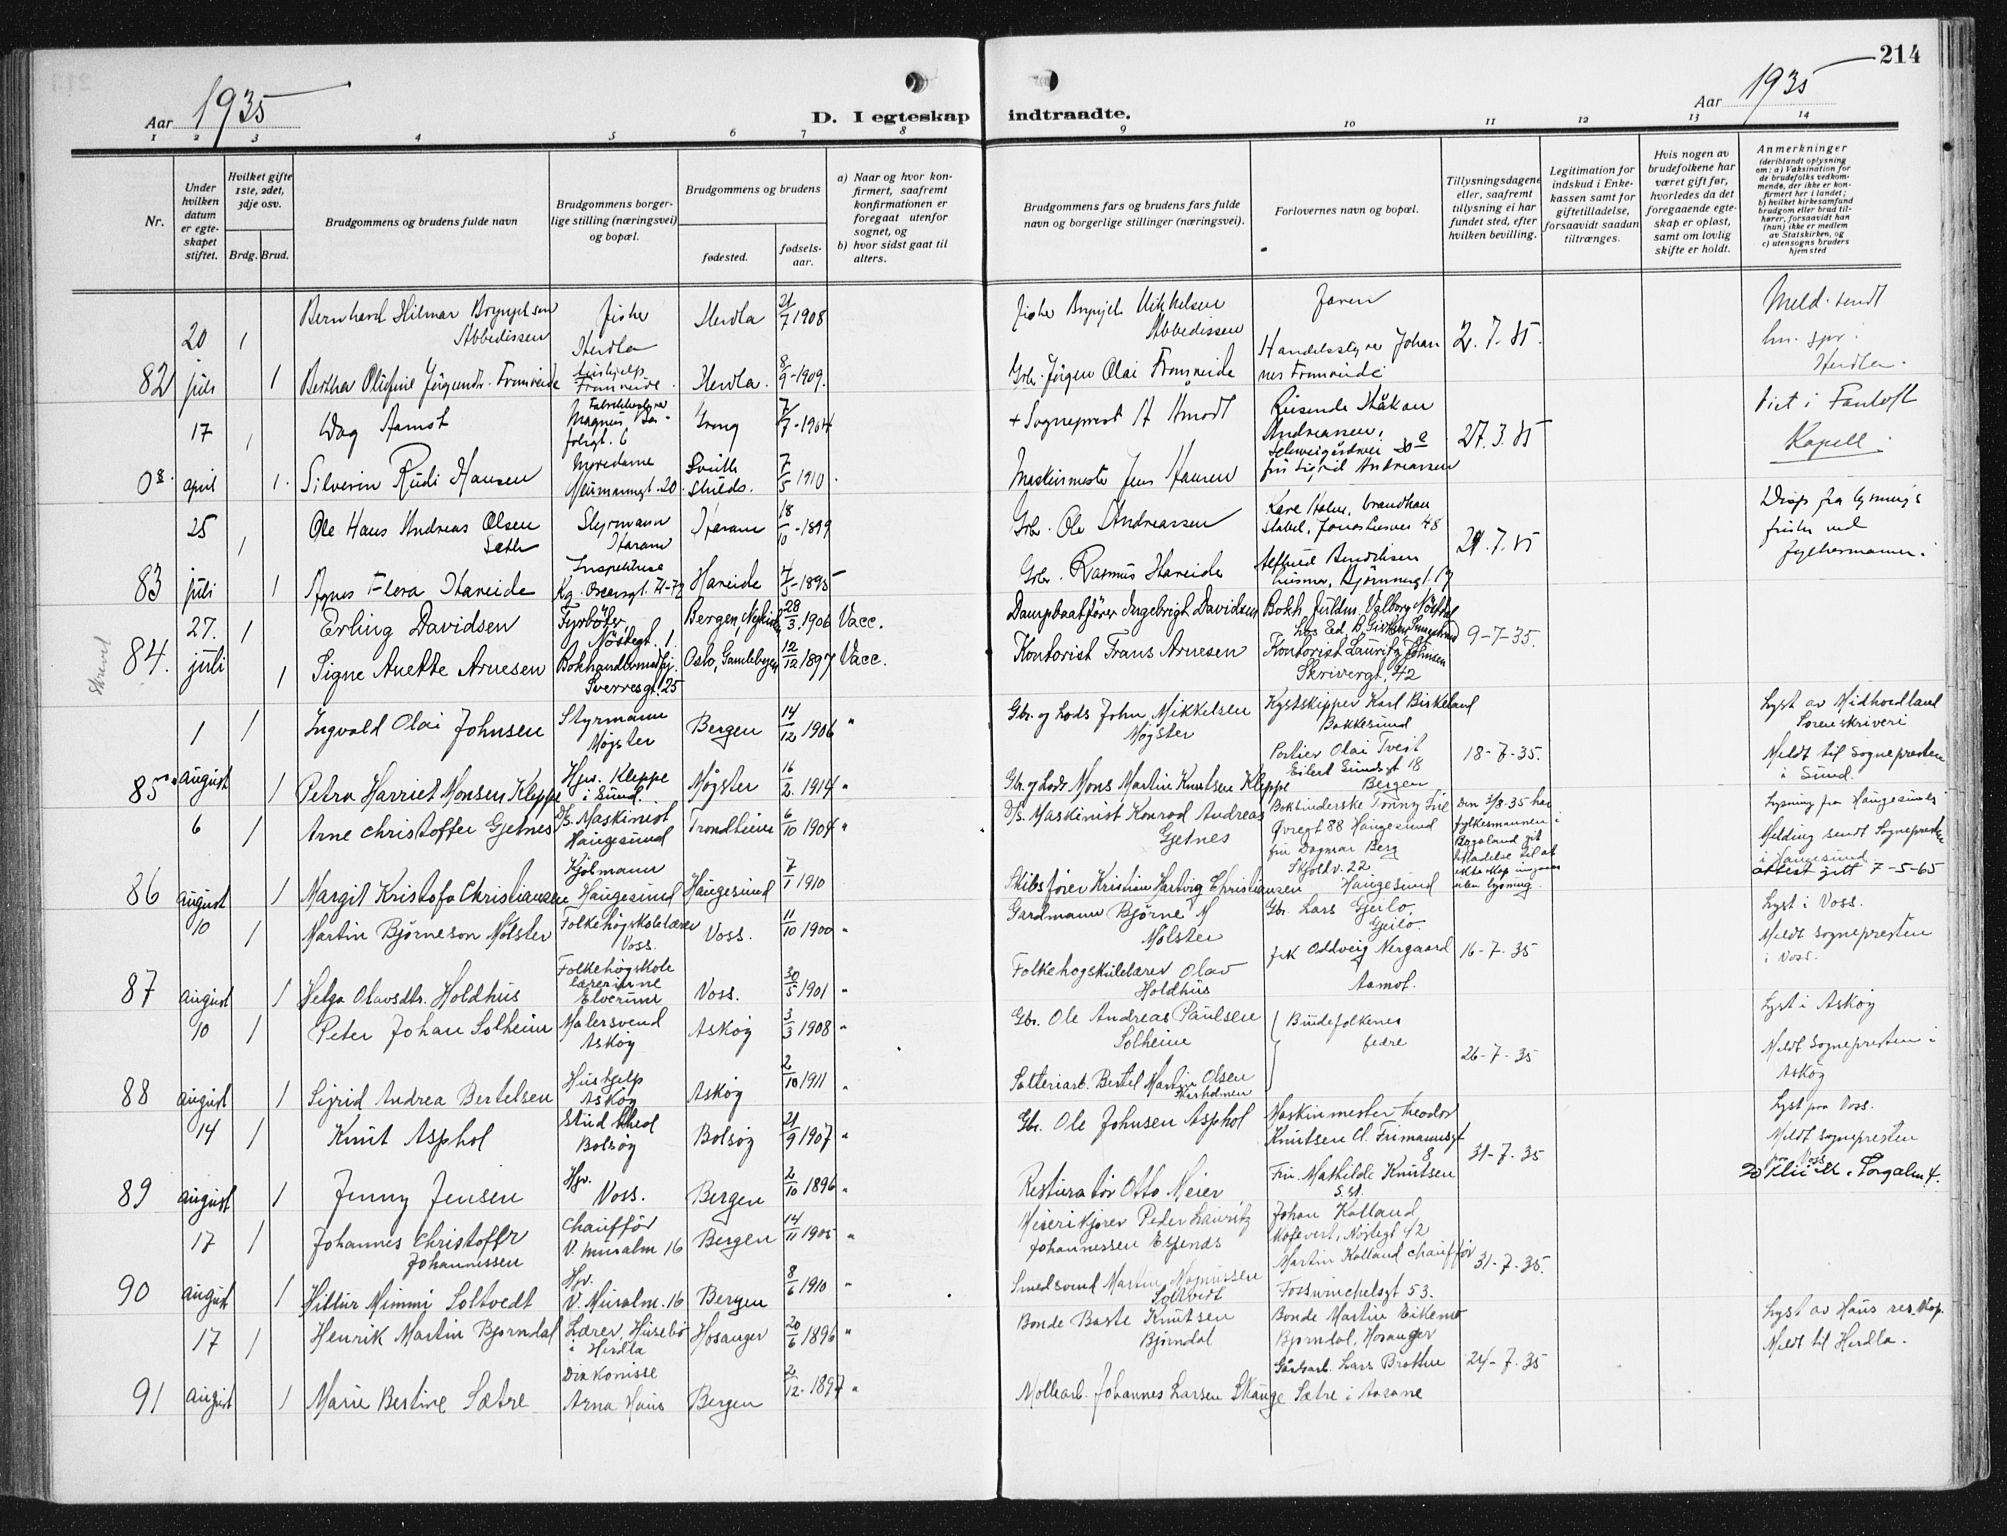 214
Aar 1935
D. I egteskap indtraadte.
Aar 1935
1 2 3 4 5 6 7 8 9 10 11 12 13 14
Nr.
Under hvilken datum er egteskapet stiftet.
Hvilket gifte 1ste, 2det, 3dje osv.
Brdg. Brud.
Brudgommens og brudens fulde navn
Brudgommens borgerlige stilling (næringsvei) og bopæl.
Brudgommens og brudens
fødested.
fødselsaar.
a) Naar og hvor konfirmert, saafremt konfirmationen er foregaat utenfor sognet, og
b) hvor sidst gaat til alters.
Brudgommens fars og brudens fars fulde navn og borgerlige stillinger (næringsvei).
Forlovernes navn og bopæl.
Tillysningsdagene eller, saafremt tillysning ei har fundet sted, efter hvilken bevilling.
Legitimation for indskud i Enkekassen samt for giftetilladelse, forsaavidt saadan tiltrænges.
Hvis nogen av brudefolkene har været gift før, hvorledes da det foregaaende egteskap er opløst, samt om lovlig skifte er holdt.
Anmerkninger
(deriblandt oplysning om: a) Vaksination for de brudefolks vedkommende, der ikke er konfirmert her i landet; b) hvilket kirkesamfund brudgom eller brud tilhører, forsaavidt han (hun) ikke er medlem av Statskirken, og c) utensogns bruders hjemsted
20 1 Bernhard Hilmar Brynjelsen Abbedissen Fisker Herdla Herdla 21/7 1908 Fisker Brynjel Mikkelsen Abbedissen Faren 2.7.35 Meld. sendt
82 juli 1 Bertha Olufine Jørgensdtr. Fromreide Hushjelp Fromreide. Herdla. 8/9-1909. Gbr. Jørgen Olai Fromreide Handelsstyrer Johannes Fromreide Herdla.
17 1 Dag Aamot Grong 7/7-1904 + Sogneprest A Amodt Reisende Håkon Andreassen, 27.3.35 Viet i Fantoft
08 april 1. Silverin Rudi Hansen Neumannsgt. 20. South Shields. 7/5 1910. Maskinmester Jens Hansen fru Sigrid Andreassen Kapell.
25 1 Ole Hans Andreas Olsen Sæth Styrmann Haram Haram 18/10-1899 Gbr. Ole Andreassen 29.7.35 Disp fra lysnings
83 juli 1 Agnes Flora Hareide Inspektrise Kg. Oscarsgt. Hareide 4/5-1895 Gbr. Rasmus Hareide fristen ved fylkesmannen.
27. 1 Erling Davidsen Fyrbøter, Nøstegt. 1. Bergen, Nykirken 28/3 1906 Vacc. Dampbaatfører Ingebrigt Davidsen Bokh. 9-7-35.
84. juli 1 Signe Anette Arnesen Sverresgt. 25 Oslo, Gamlebyen 12/12 1897 Vacc. Kontorist Frans Arnesen Kontorist Lauritz Johnsen Skrivergt. 42
1 1 Ingvald Olai Johnsen Styrmann Møgster Bergen 14/12 1906 " Gbr. og Lods John Mikkelsen Møgster Kystskipper Karl Birkeland Bakkesund 18-7-35. Lyst av Midhordland Sorenskriveri
85 august 1 Petra Harriet Monsen Kleppe Hjv. Kleppe i Sund. Møgster 16/2 1914 " Gbr. og Lods Mons Martin Knutsen Kleppe Portier Olai Tveit Eilert Sundsgt 18 Bergen Meldt til sognepresten i Sund.
6 1 Arne Christoffer Gjetnes D/S. Maskinist Haugesund Trondheim 6/10 1904 " D/S. Maskinist Konrad Andreas Gjetnes Bokbinderske Tonny Øvregt 88 Haugesund Den 3/8-35 har fylkesmannen i Rogaland gitt tilladelse til at ekteskap inngaaes uten lysning. Lysning fra Haugesund
86 august 1 Margit Kristofa Christiansen Kjølmann Haugesund Haugesund 7/1 1910 Skibsfører Kristian Hartvig Christiansen fru Dagmar Berg Skjoldv. 22 Haugesund Melding sendt Sognepresten i Haugesund attest gitt 7-5-65
10 1 Martin Bjørneson Mølster Folkehøgskolelærer Voss. Voss. 11/10 1900 " Gardmann Bjørne M Mølster Gbr. Lars Geilo, Geilo. 16-7-35 Lyst i Voss.
87 august 1 Helga Olavsdtr. Holdhus Folkehøgskole lærerinne Elverum Voss. 30/5 1901 " Folkehøgskulelærer Olav Holdhus frk Oddveig Nergaard Aamot. Meldt sognepresten i Voss.
10 1 Peter Johan Solheim Malersvend Askøy Askøy 3/3 1908 " Gbr. Ole Andreas Paulsen Solheim Brudefolkenes fedre 26-7-35 Lyst i Askøy
88 august 1 Sigrid Andrea Bertelsen Hushjelp Askøy Askøy 2/10 1911 " Bertel Martin Olsen Meldt sognepresten i Askøy
14 1 Knut Asphol Stud theol Bolsøy Bolsøy 21/9 1907 " Gbr. Ole Johnsen Asphol Maskinmester Theodor Knutsen Cl. Frimannsgt 8 31-7-35 Lyst paa Voss.
89 august 1 Jenny Jensen Hjv. Voss. Bergen 2/10 1896 " Restauratør Otto Meier Fru Mathilde Knutsen s. st. Meldt sognepresten paa Voss
17 1 Johannes Christoffer Johannessen Chauffør V. Muralm 16 Bergen 14/11 1905 " Peder Lauritz Johannessen Espenæs Johan Kolland 31-7-35.
90 august 1 Hildur Mimmi Soltvedt Hjv. V. Muralm. 16 Bergen 8/6 1910 " Smedsvend Martin Magnussen Soltvedt Martin Kolland chauffør Fosswinckelsgt 53.
17 1 Henrik Martin Bjørndal Lærer, Husebø i Herdla Hosanger 20/6 1896 " Bonde Baste Knutsen Bjørndal Bonde Martin Eikemo Bjørndal, Hosanger 24-7-35 Lyst av Haus res. Kap.
91 august 1 Marie Bertine Sætre Diakonisse Arna Haus Bergen 2/12-1897 " Møllearb. Johannes Larsen Skauge Gårdsarb. Lars Brotten Sætre i Aasane Meldt til Herdla.